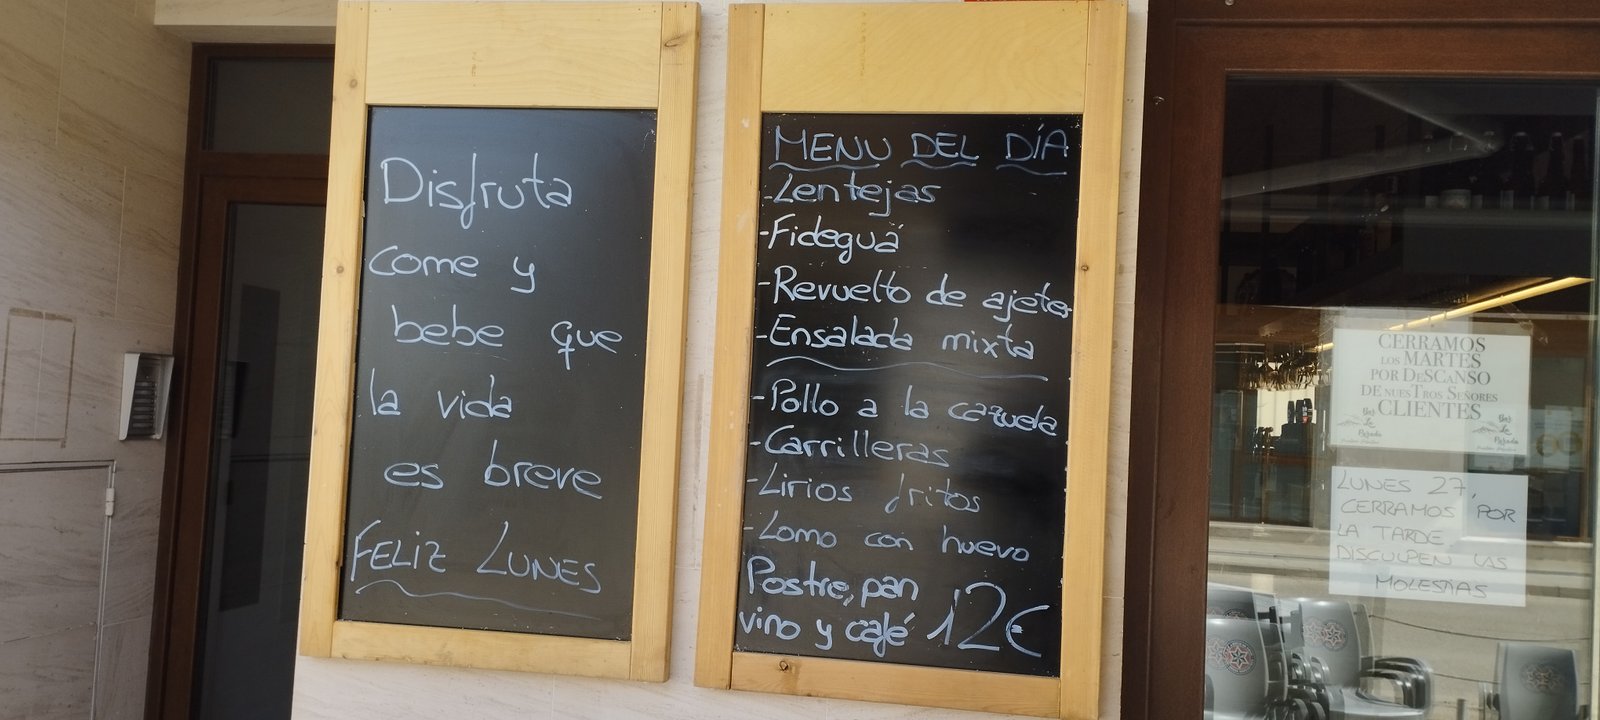 Disfruta
come y
bebe que
la vida
es breve
FELIZ LUNES
MENU DEL DÍA
-Lentejas
-Fideguá
-Revuelto de ajetes
-Ensalada mixta
-Pollo a la cazuela
-Carrilleras
-Lirios fritos
-Lomo con huevo
Postre, pan
vino y café 12€
CERRAMOS
LOS MARTES
POR DESCANSO
DE NUESTROS SEÑORES
CLIENTES
Bar La Parada
Bar La Parada
LUNES 27,
CERRAMOS POR
LA TARDE
DISCULPEN LAS
MOLESTIAS